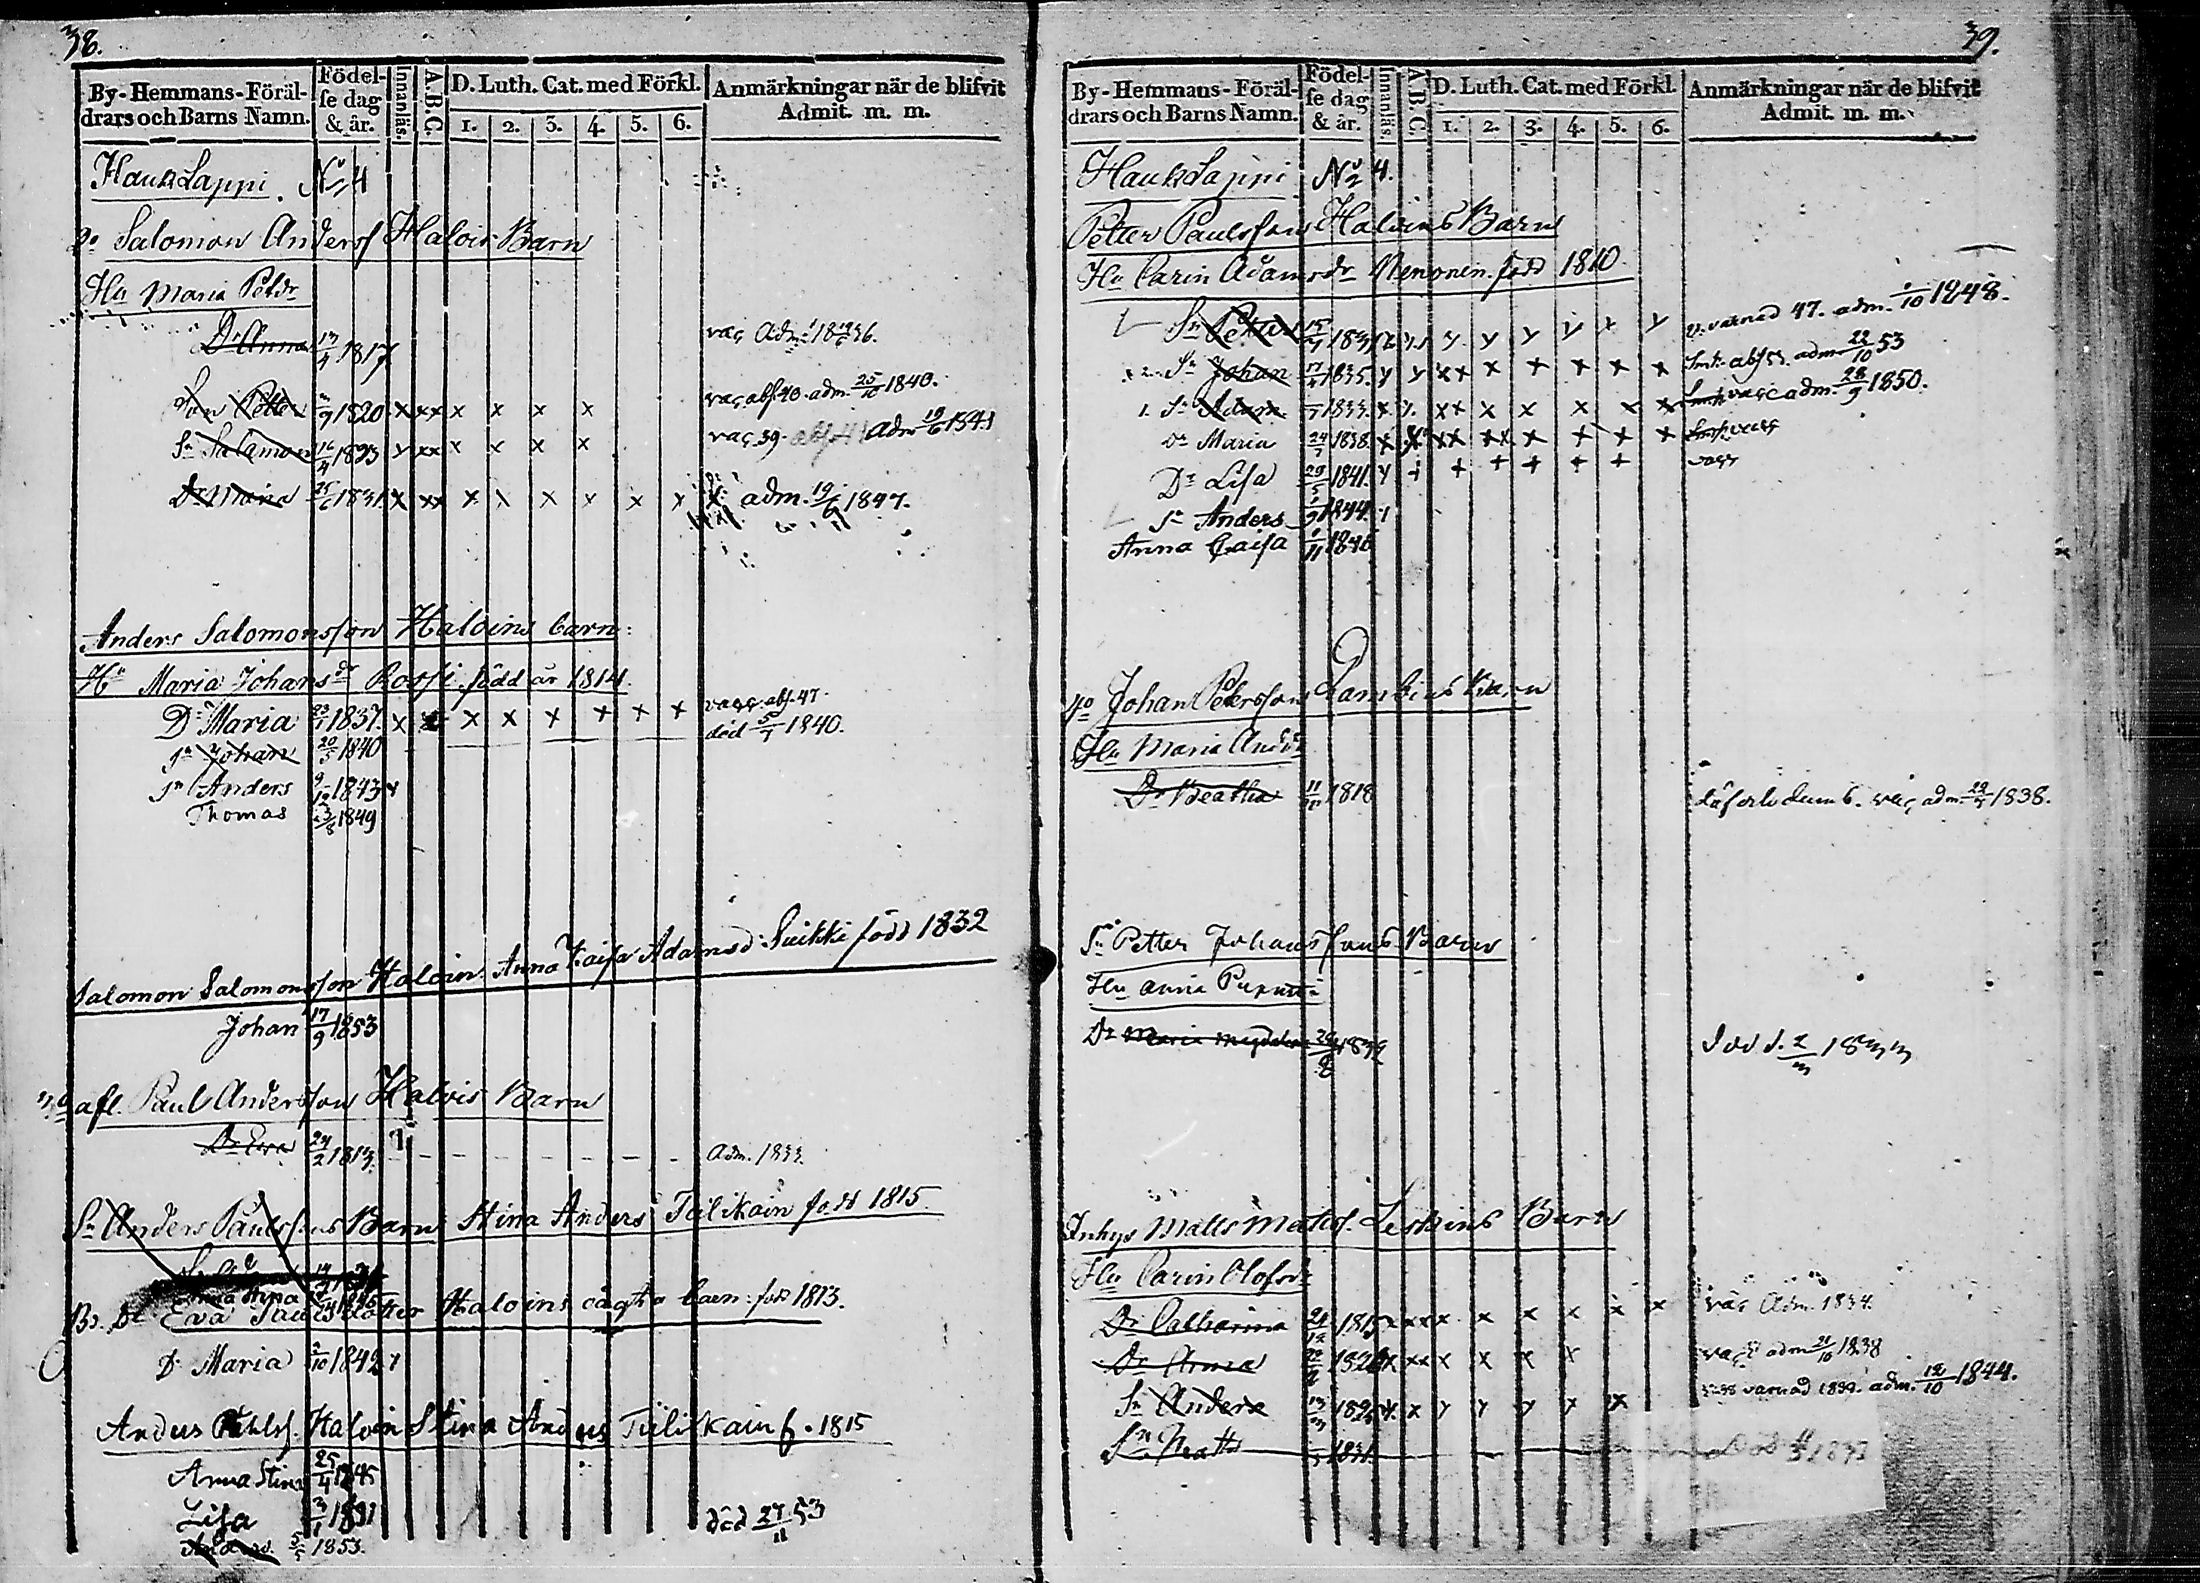 38.
By-Hemmans-Föräl-
drars och Barns Namn.
Födel-
se dag
& år.
Innanläs.
A.B.C.
D. Luth. Cat. med Förkl.
1. 2. 3. 4. 5. 6.
Anmärkningar när de blifvit
Admit. m. m.
HaukLappi. No 4
2o Salomon Anderss Halvis Barn
Hu Maria Petdr
Dr Anna 13/4 1817 vac Adm.
Son Petter 1820 x xx x x x x vac abs. 40. adm. 25/10 1840.
Sn Salamon 16/4 1823 y xx x x x x vac 39. abs. 41 adm 19/6 1841
Dr Maria 25/6 1831. x xx x x x x x x x adm. 19/6 1847.
Anders Salomonsson Halvins barn:
Hu Maria Johansdr Rossi född år 1814.
Dr Maria 23/1 1837. x x x x x x x x vacc. abs. 47
Sn Johan 20/3 1840 död 1840.
Sn Anders 9/12 1843 x
Thomas 23/8 1849
Salomon Salomonsson Halvin. Anna Kaisa Adamsd: Suikki född 1832
Johan 17/9 1853
3o afl. Paul Andersson Halvis Barn
Dr Eva 24/2 1813. Adm. 1833.
Sn Anders Paulssons Barn Stina Anders Tulikain född 1815.
Anna Stina
Dr Eva Paulsdotter Halvins oägta barn: född 1813.
Dr Maria 2/10 1842 x
Anders Pahlss. Halvin Stina Anders Tulikain f. 1815
Anna Stina 25/4 1845
Lisa 3/1 1851
Anders. 5/5 1853. död 27/11 53
39.
By-Hemmans-Föräl-
drars och Barns Namn.
Födel-
se dag
& år.
Innanläs.
A.B.C.
D. Luth. Cat. med Förkl.
1. 2. 3. 4. 5. 6.
Anmärkningar när de blifvit
Admit. m. m.
HaukLappi No 4.
Petter Paulssons Halvins Barn
Hu Carin Adamsdr Nenonen. född 1810.
Sn Petter y y y y x y varnad 47. adm. 1/10 1848.
2. Sn Johan 17/4 1835. y y xx x x x x x abs 53. adm 22/10 53
1. Sn Adam 1833. x y. xx x x x x x vac adm. 28/9 1850.
Dr Maria 24/7 1838. x x xx xx x x x x
Dr Lisa 29/5 1841. y + + + + + + vacc
Sn Anders 1/9 1844. 1
Anna Caisa 1/11 1846
4o Johan Petersson Lambins Barn
Hu Maria Andrdr
Dr Beatha 11/11 1818 dumb. vac adm. 1838.
Sn Petter Johanssons Barn
Hu Anna
Dr Maria Magdalena död d. 2/3 1833
Inhys Matts Matss. Leskins Barn
Hu Carin Olofsdr
Dr Catharina 21/12 1815 x xx x x x x x x vac Adm. 1834.
Dr Anna x xx x x x x vac adm 21/10 1838
Sn Anders x x y y y y x varnad 1839. adm. 12/10 1844.
Sn Matts 1831. Död